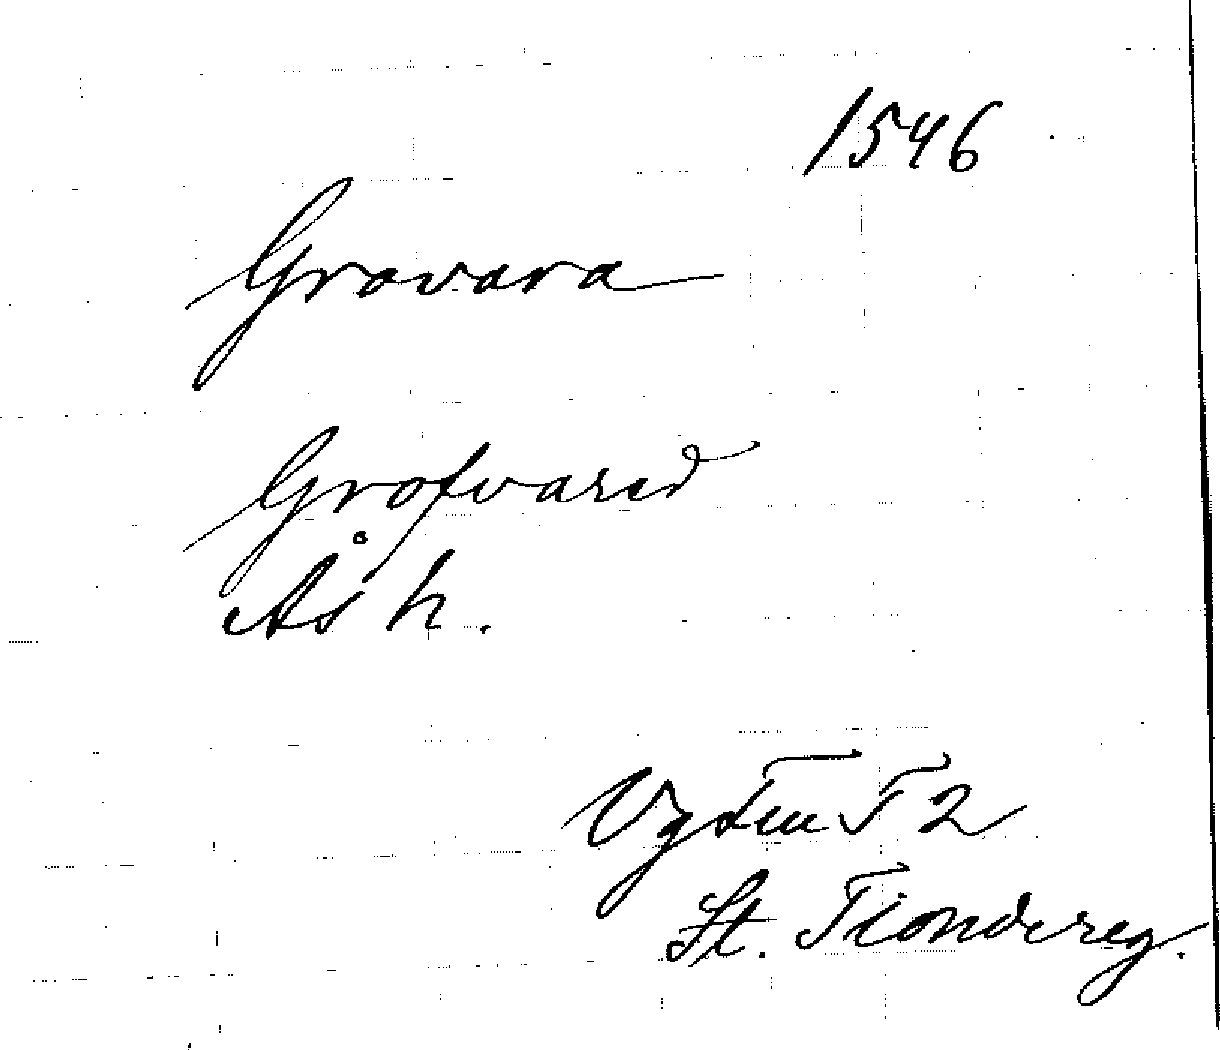 1546
Grovara
Grofvared
Ås h.
Vg Tiu T 2
St. Tiondereg.